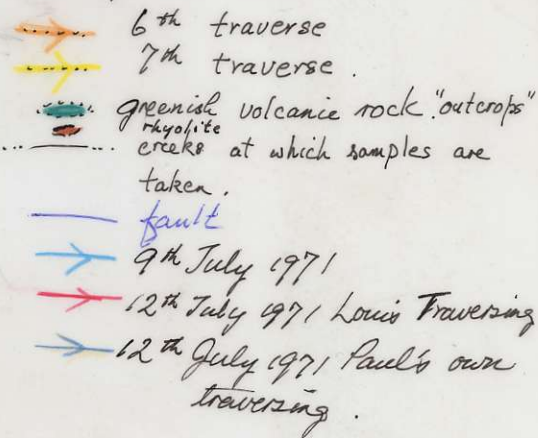 6th traverse
7th traverse.
greenish volcanic rock "outcrops"
rhyolite
creeks at which samples are
taken.
fault
9th July 1971
12th July 1971 Louis Traversing
12th July 1971 Paul's own
traversing.